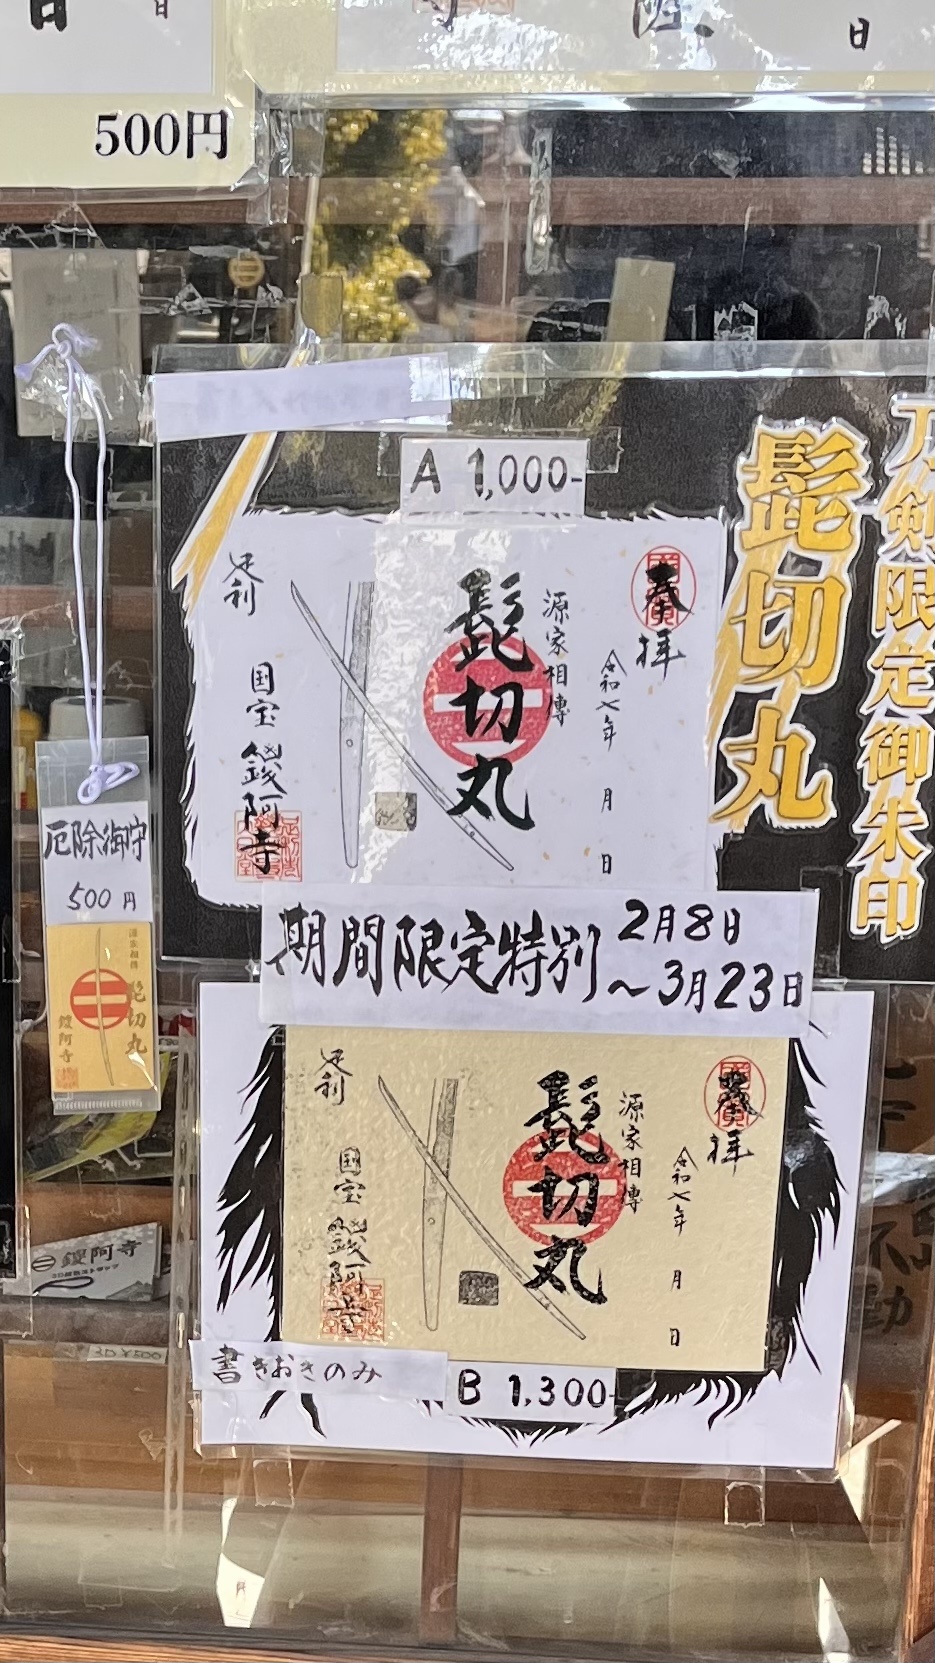 日
日
日
500円
A 1,000-
刀剣限定御朱印
髭切丸
奉拝
令和七年 月 日
源家相傳
髭切丸
足利
国宝 鑁阿寺
厄除御守
500円
源家相傳
髭切丸
鑁阿寺
期間限定特別 2月8日
~3月23日
奉拝
令和七年 月 日
源家相傳
髭切丸
足利
国宝 鑁阿寺
書きおきのみ
B 1,300-
鑁阿寺
3D ¥500